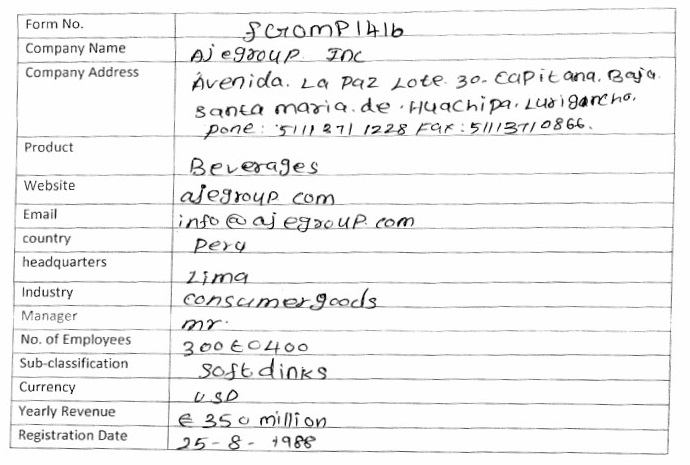 Form No. SGOMP1416
Company Name Ajegroup Inc
Company Address Avenida. La Paz Lote 30. Capitana. Baja.
Santa maria. de. Huachipa. Lurigancho.
pone: 5111371 1228 Fax: 5111371 0866.
Product Beverages
Website ajegroup com
Email info@ajegroup.com
country Peru
headquarters Lima
Industry consumergoods
Manager mr.
No. of Employees 300 to 400
Sub-classification Soft dinks
Currency USD
Yearly Revenue € 350 million
Registration Date 25-8-1988